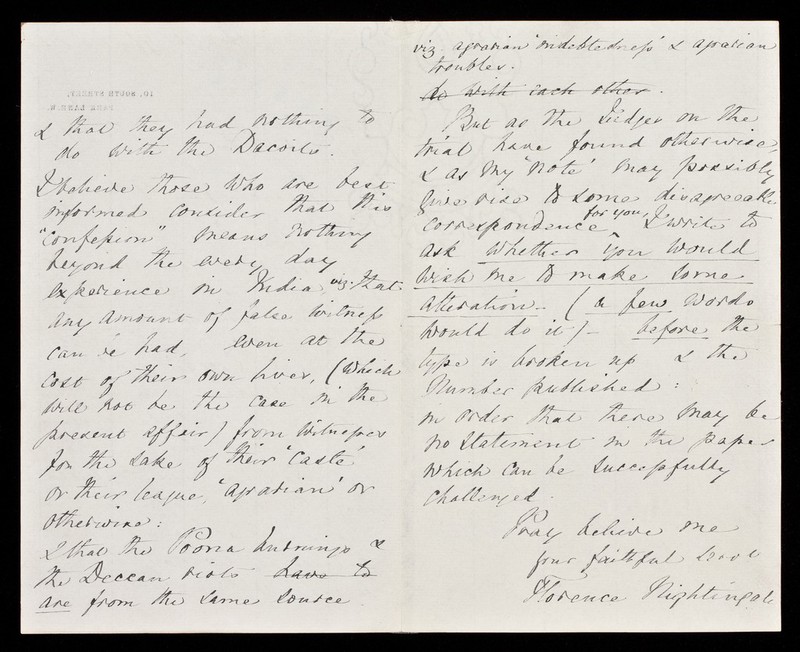 10, SOUTH STREET,
PARK LANE. W.
& that they had nothing to
do with the Dacoits.
I believe those who are best
informed consider that this
"Confession" means nothing
beyond the every day
experience in India viz. that
any amount of false witness
can be had, even at the
cost of their own lives, (which
will not be the case in the
present affair) from witnesses
for the sake of their 'caste'
or their league, 'agrarian' or
otherwise:
& that the Poona burnings &
the Deccan riots have to
are from the same source
viz. agrarian indebtedness & agrarian
troubles.
do with each other.
But as the Judges on the
trial have found otherwise,
& as my 'note' may possibly
give rise to some disagreeable
correspondence for you, I write to
ask whether you would
wish me to make some
alteration - (a few words
would do it) - before the
type is broken up & the
Number published:
in order that there may be
no statement in the paper
which can be successfully
challenged.
Pray believe me
your faithful servt
Florence Nightingale